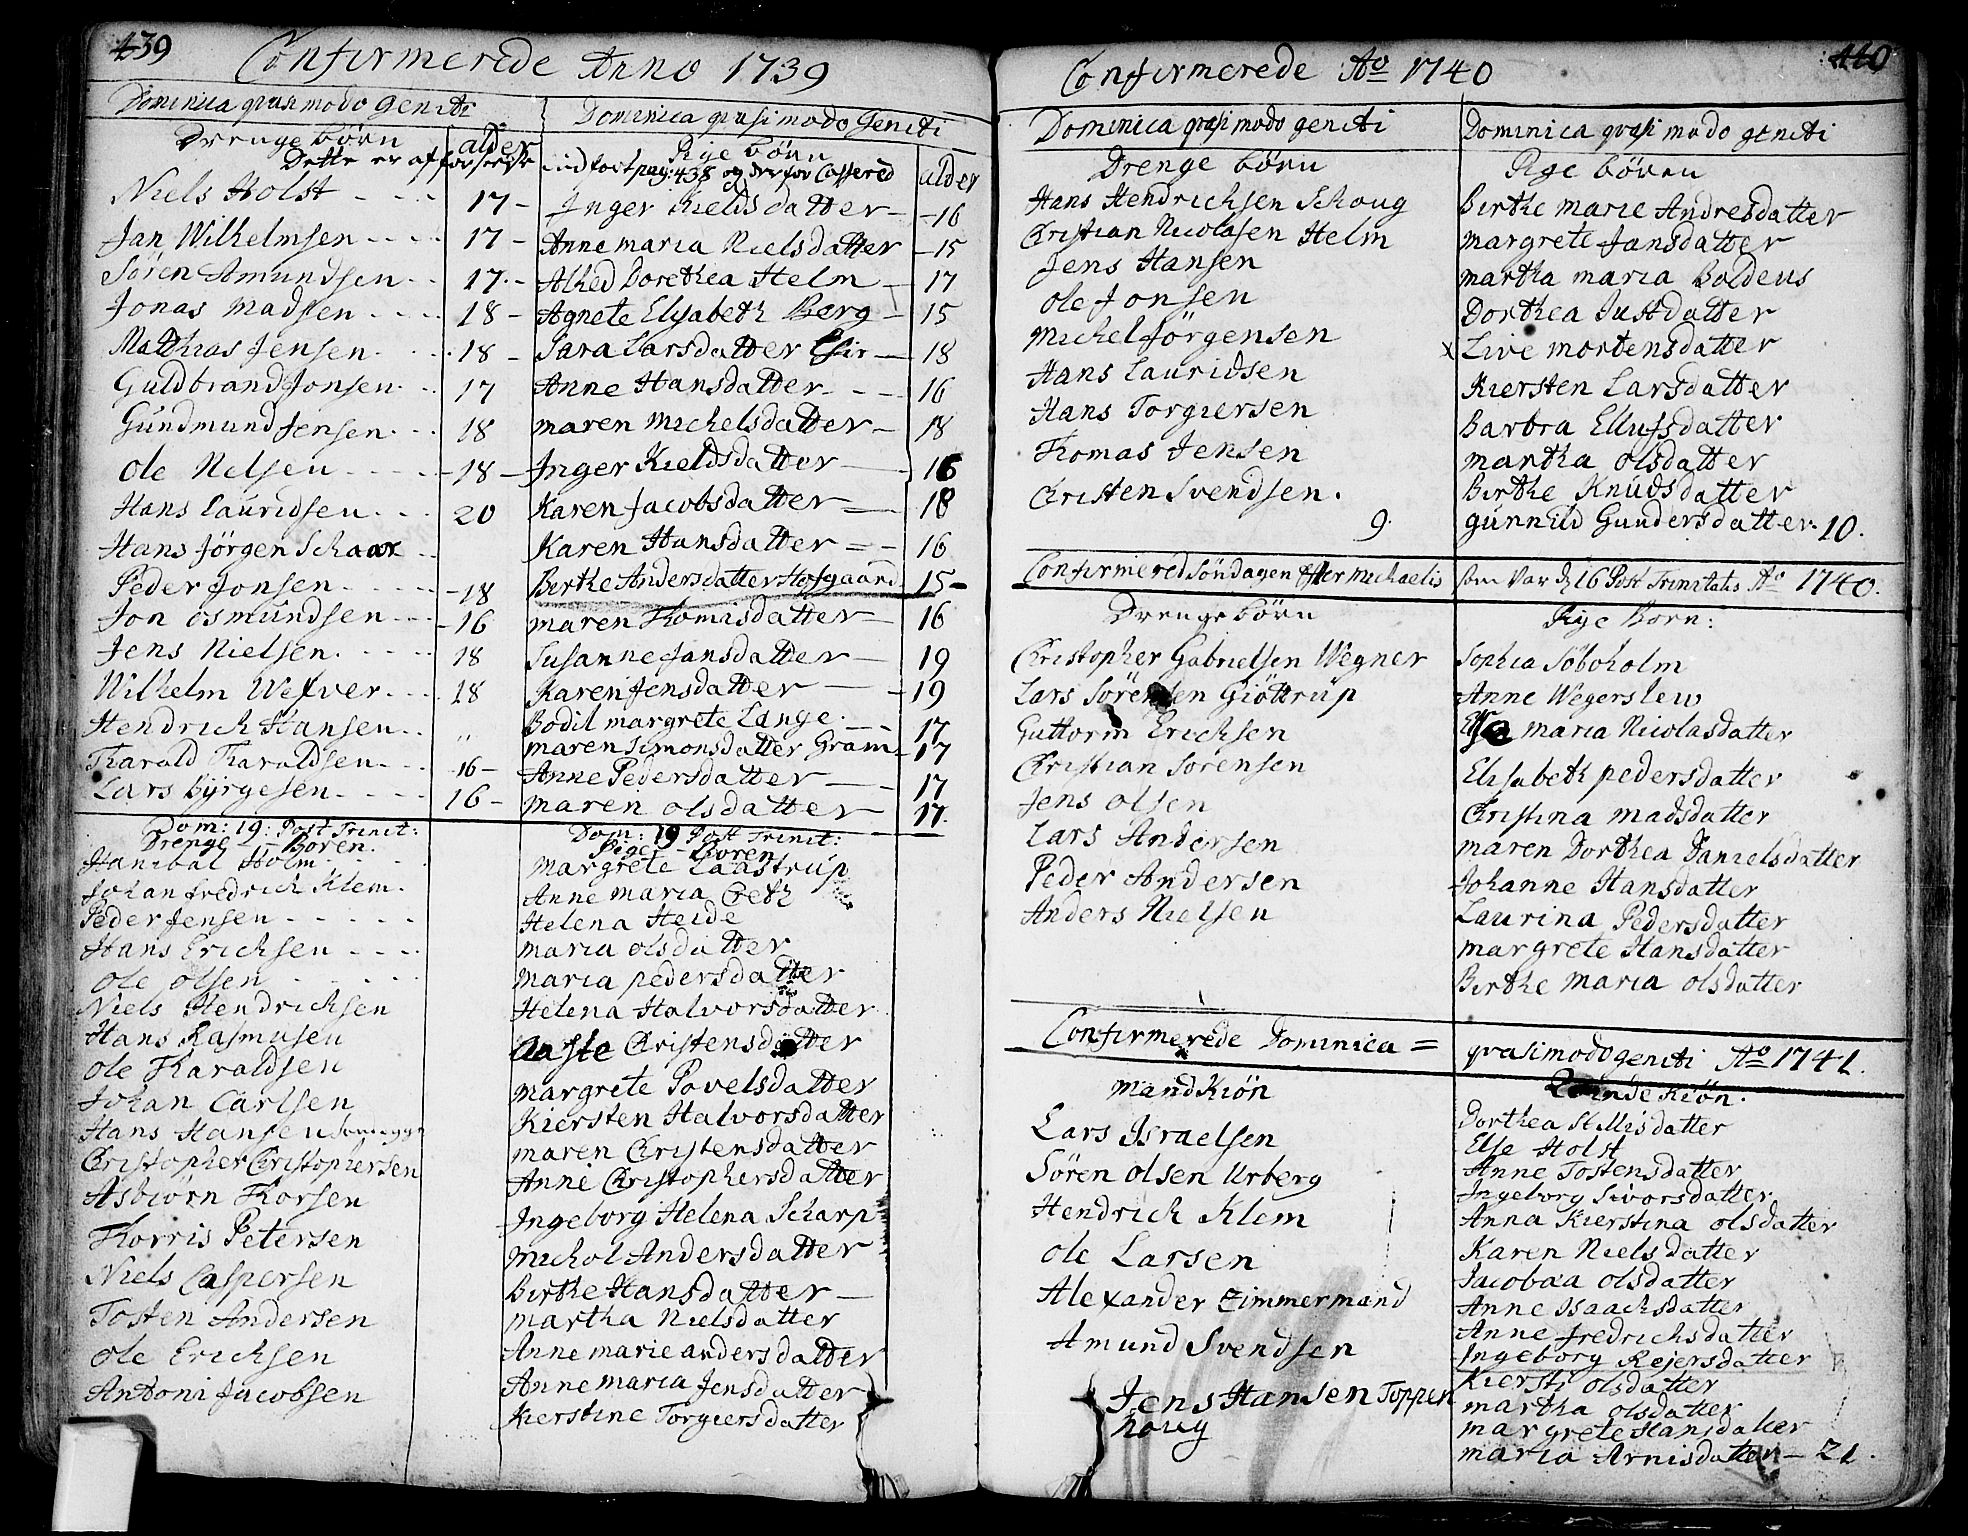 439
Confirmerede Anno 1739
Dominica quasimodo geniti
Drenge børn alder
Dette er af
Niels Holst - - - 17 -
Jan Wilhelmsen - - - 17 -
Søren Amundsen - - 17 -
Jonas Madsen - - - 18 -
Matthias Jensen - - - 18 -
Guldbrand Jonsen - - 17
Gundmund Jensen - - 18
Ole Nelsen - - - - 18 -
Hans Lauridsen - - - 20
Hans Jörgen Schaar - -
Peder Jonsen - - - - 18
Jon Osmundsen - - - 16
Jens Nielsen - - - - 18
Wilhelm Wefver - - - 18
Hendrich Hansen - - "
Harald Haraldsen - - - 16 -
Lars Byrgesen - - - - 16 -
Dom: 19: Post Trinit:
Drenge - Boren.
Hanibal Holm - - - -
Johan Fredrich Klem.
Peder Jensen - - - - -
Hans Erichsen - - - -
Ole Olsen - - - -
Niels Hendrichsen
Hans Rasmusen
Ole Haraldsen
Johan Carlsen
Hans Hansen
Christopher Christophersen
Asbiørn Thorsen
Thorris Petersen
Niels Caspersen
Tosten Andersen
Ole Erichsen
Antoni Jacobsen
Dominica quasimodo Geniti
Pige børn alder
pag: 438 og derfor Cassered
Inger Kieldsdatter - 16
Anne maria Nielsdatter - 15
Alhed Dorethea Helm - 17
Agnete Elysabeth Berg - 15
Sara Larsdatter - 18
Anne Hansdatter - - - 16
maren Michelsdatter - 18
Inger Kieldsdatter - 16
Karen Jacobsdatter - 18
Karen Hansdatter = - 16
Birthe Andersdatter Hofgaard 15 -
maren Thomisdatter - 16
Susanne Jansdatter - 19
Karen Jensdatter - - 19
Bodil margrete Lange - 17
maren Simonsdatter Gram - 17
Anne Pedersdatter - 17
maren olsdatter - 17.
Dom: 19 Post Trinit:
Piger - Boren
margrete Laastrup
Anne maria Creth
Helena Heide
maria olsdatter
maria pedersdatter
Helena Halvorsdatter
Aasle Christensdatter
margrete Povelsdatter
Kiersten Halvorsdatter
maren Christensdatter
Anne Christophersdatter
Ingeborg Helena Scharp
Michol Andersdatter
Birthe Hansdatter -
martha Nielsdatter
Anne marie andersdatter
Anne maria Jensdatter
Kierstine Torgiersdatter
440
Confirmerede Ao 1740
Dominica qvasimodo geniti
Drenge børn
Hans Hendrichsen Schoug
Christian Nicolasen Helm
Jens Hansen
Ole Jonsen
Michel Jörgensen
Hans Lauridsen
Hans Torgiersen
Thomas Jensen
Christen Svendsen.
9.
Dominica qvasimodo geniti
Pige børn
Birthe Marie Andresdatter
Margrete Jansdatter
Martha maria Boldeus
Dorthea Justdatter
x Live mortensdatter
Kiersten Larsdatter
Barbra Ellufsdatter
martha olsdatter
Birthe Knudsdatter
gunnild Gundersdatter. 10.
Confirmered Söndagen Efter Michaelis som var d. 16 Post Trinitatis Ao 1740.
Drenge børn
Christopher Gabrielsen Wegner
Lars Sörensen Giöttrup
Guttorm Erichsen
Christian Sorensen
Jens olsen
Lars Andersen
Peder Andersen
Anders Nielsen
Pige Børn:
Sophia Söboholm
Anne Wegerslew
Else maria Nicolasdatter
Elisabeth pedersdatter
Christina madsdatter
maren Dorthea Danielsdatter
Johanne Hansdatter
Laurina Pedersdatter
margrete Hansdatter
Birthe maria olsdatter
Confirmerede Dominica = qvasimodogeniti Ao 1741.
mandkiön
Lars Israelsen
Sören olsen Urberg
Hendrich Klem
Ole Larsen
Alexander Zimmermand
Amund Svendsen
Jens Hansen Toppen
houg
Qvindekiön.
Dorthea Stillisdatter
Else Holst
Anne Tostensdatter
Ingeborg Sivorsdatter
Anna Kierstina olsdatter
Karen Nielsdatter
Jacobaa olsdatter
Anne Isaachsdatter
Anne fredrichsdatter
Ingeborg Reiersdatter
Kiersti olsdatter
martha olsdatter
margrete Hansdatter
maria Arnisdatter - 21.